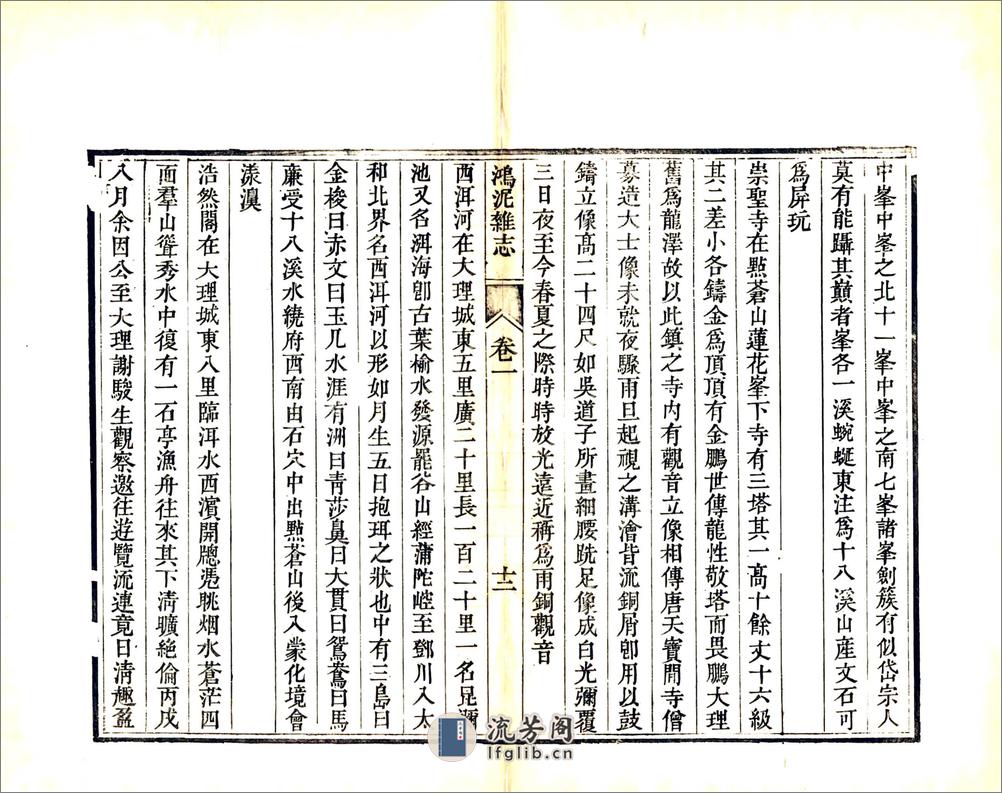 中峯中峯之北十一峯中峯之南七峯諸峯劍簇有似岱宗人
莫有能躡其巔者峯各一溪蜿蜒東注爲十八溪山産文石可
爲屏玩
崇聖寺在㸃蒼山蓮花峯下寺有三塔其一高十餘丈十六級
其二差小各鑄金爲頂頂有金鵬世傳龍性敬塔而畏鵬大理
舊爲龍澤故以此鎮之寺内有觀音立像相傳唐天寶間寺僧
募造大士像未就夜驟雨旦起視之溝澮皆流銅屑卽用以鼓
鑄立像高二十四尺如吳道子所畫細腰跣足像成白光彌覆
三日夜至今春夏之際時時放光遠近稱爲雨銅觀音
鴻泥雜志
卷一
十二
西洱河在大理城東五里廣二十里長一百二十里一名昆彌
池又名洱海卽古葉榆水發源罷谷山經蒲陀崆至鄧川入太
和北界名西洱河以形如月生五日抱珥之狀也中有三島曰
金梭曰赤文曰玉几水涯有洲曰青莎鼻曰大貫曰鴛鴦曰馬
廉受十八溪水繞府西南由石穴中出㸃蒼山後入䝉化境會
漾濞
浩然閣在大理城東八里臨洱水西濱開牕憑眺烟水蒼茫四
面羣山聳秀水中復有一石亭漁舟往來其下淸曠絶倫丙戌
八月余因公至大理謝駿生觀察邀往遊覽流連竟日淸趣盈
流芳阁
lfglib.cn